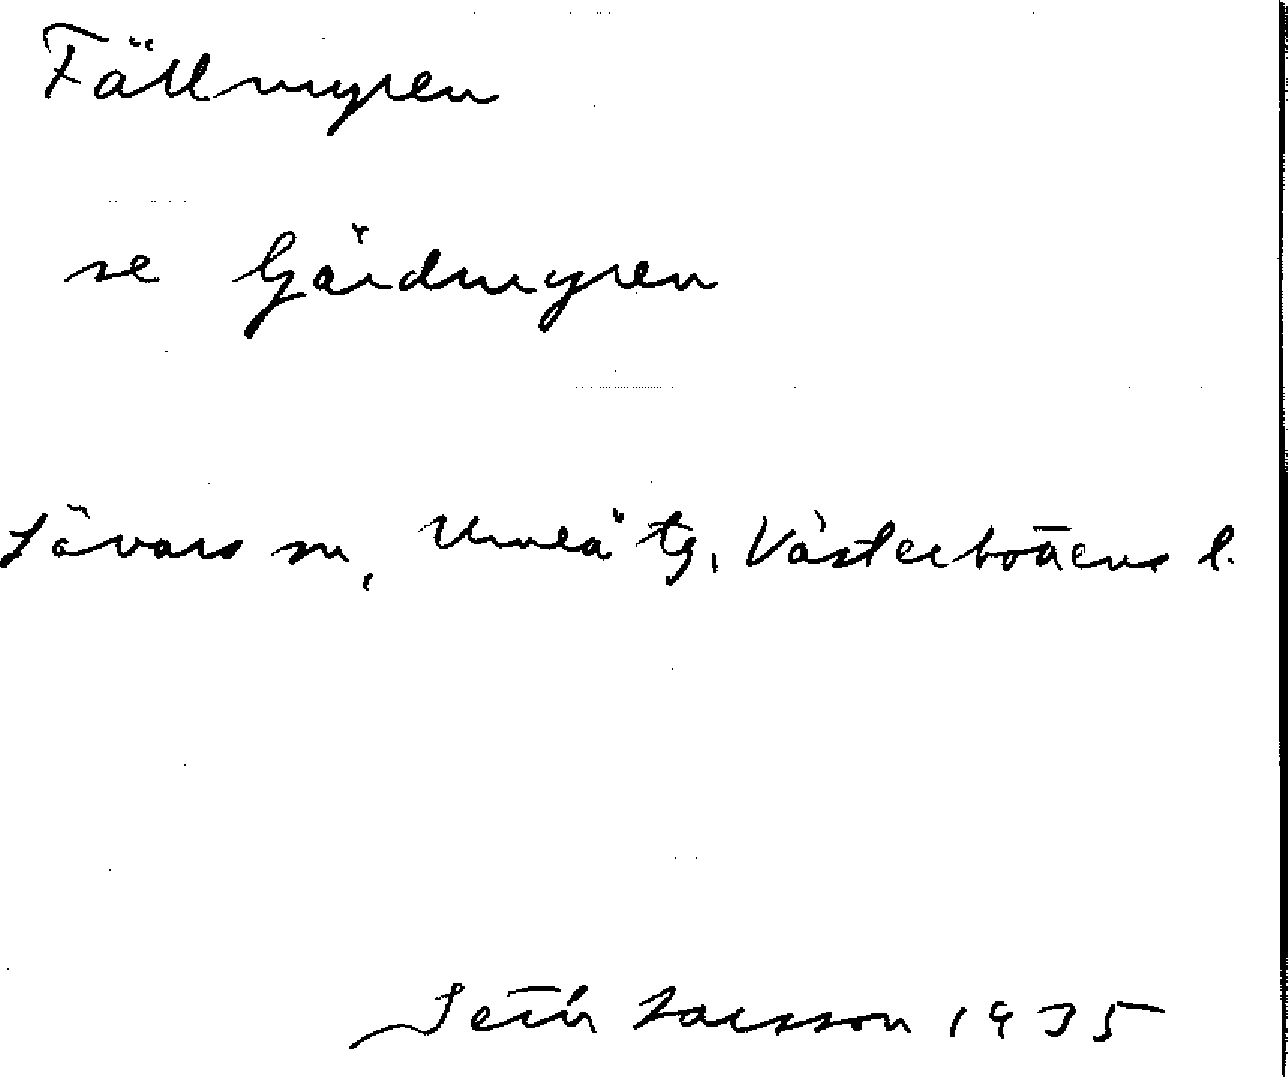 Fällmyren
se Gärdmyren
Sävars sn, Umeå tg, Västerbottens l.
Seth Larsson 1935